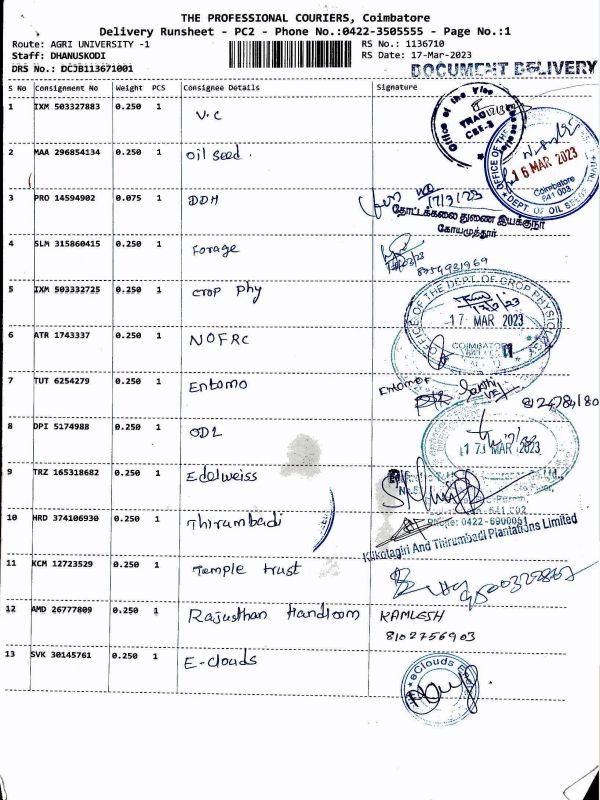 THE PROFESSIONAL COURIERS, Coimbatore
Delivery Runsheet - PC2 - Phone No.:0422-3505555 - Page No.:1
Route: AGRI UNIVERSITY -1
RS No.: 1136710
Staff: DHANUSKODI
RS Date: 17-Mar-2023
DRS No.: DCJB113671001
DOCUMENT DELIVERY
S No Consignment No Weight PCS Consignee Details Signature
1 IXM 503327883 0.250 1 V.C
Office of the Vice
TNAU
CBE-3
2 MAA 296854134 0.250 1 Oil seed.
16 MAR 2023
Coimbatore
641 003.
DEPT. OF OIL SEEDS
3 PRO 14594902 0.075 1 DDH
17/3/23
தோட்டக்கலை துணை இயக்குநர்
கோயமுத்தூர்
4 SLM 315860415 0.250 1 Forage
5 IXM 503332725 0.250 1 Crop Phy
OFFICE OF THE DEPT. OF CROP PHYSIOLOGY
17 MAR 2023
COIMBATORE
6 ATR 1743337 0.250 1 NOFRC
7 TUT 6254279 0.250 1 Entomo
8 DPI 5174988 0.250 1 ODL
17 MAR 2023
9 TRZ 165318682 0.250 1 Edelweiss
10 HRD 374106930 0.250 1 Thirumbadi
Phone: 0422-6900051
Kilkotagiri And Thirumbadi Plantations Limited
11 KCM 12723529 0.250 1 Temple trust
12 AMD 26777809 0.250 1 Rajusthan Handloom KAMLESH
8102756903
13 SVK 30145761 0.250 1 E-clouds
eClouds